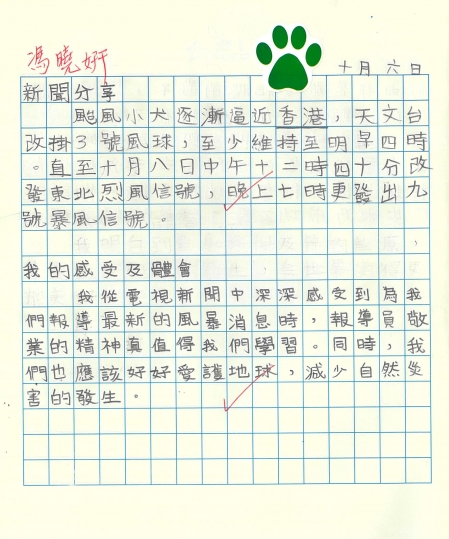 馮曉妍
十月六日
新聞分享
颱風小犬逐漸逼近香港，天文台
改掛3號風球，至少維持至明早四時
。直至十月八日中午十二時四十分改
發東北烈風信號，晚上七時更發出九
號暴風信號。
我的感受及體會
我從電視新聞中深深感受到為我
們報導最新的風暴消息時，報導員敬
業的精神真值得我們學習。同時，我
們也應該好好愛護地球，減少自然災
害的發生。